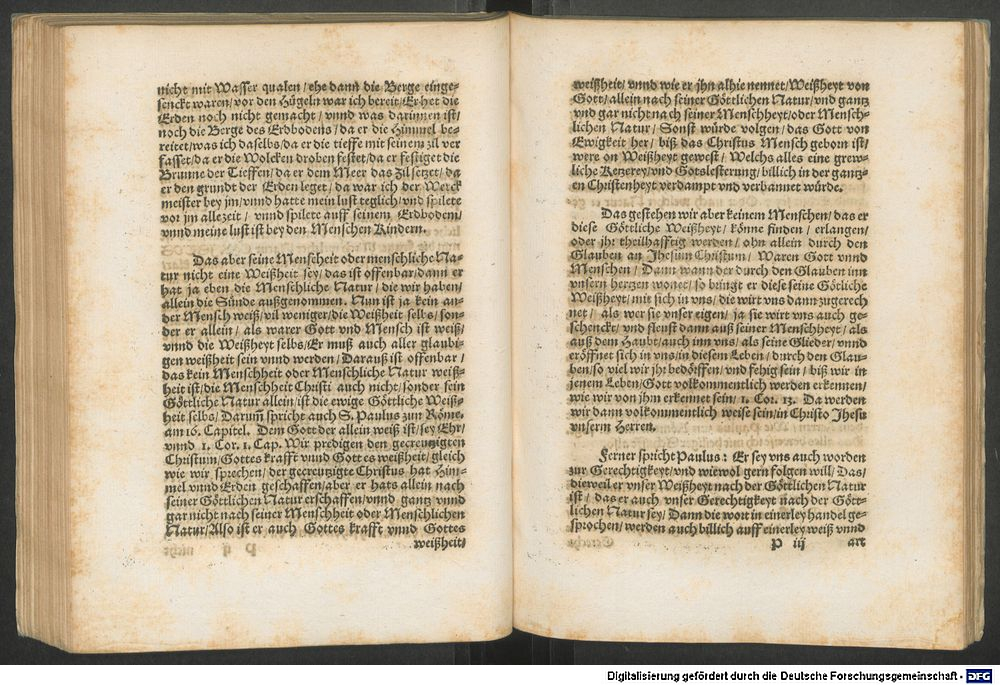 nicht mit Wasser qualen / ehe dann die Berge einge-
senckt waren / vor den Hügeln war ich bereit / Er het die
Erden noch nicht gemacht / vnnd was darinnen ist /
noch die Berge des Erdbodens / da er die Himmel be-
reitet / was ich daselbs / da er die tieffe mit seinem zil ver
fasset / da er die Wolcken droben festet / da er festiget die
Brunne der Tieffen / da er dem Meer das zil setzet / da
er den grundt der Erden leget / da war ich der Werck
meister bey jm / vnnd hatte mein lust teglich / vnd spilete
vor jm allezeit / vnnd spilete auff seinem Erdbodem /
vnnd meine lust ist bey den Menschen Kindern.
Das aber seine Menscheit oder menschliche Na-
tur nicht eine Weißheit sey / das ist offenbar / dann er
hat ja eben die Menschliche Natur / die wir haben /
allein die Sünde außgenommen. Nun ist ja kein an-
der Mensch weiß / vil weniger / die Weißheit selbs / son-
der er allein / als warer Gott vnd Mensch ist weiß /
vnnd die Weißheyt selbs / Er muß auch aller glaubi-
gen weißheit sein vnnd werden / Darauß ist offenbar /
das kein Menschheit oder Menschliche Natur weiß-
heit ist / die Menschheit Christi auch nicht / sonder sein
Göttliche Natur allein / ist die ewige Göttliche Weiß-
heit selbs / Darum̃ spricht auch S. Paulus zun Röme.
am 16. Capitel. Dem Gott der allein weiß ist / sey Ehr /
vnnd 1. Cor. 1. Cap. Wir predigen den gecreutzigten
Christum / Gottes krafft vnnd Gottes weißheit / gleich
wie wir sprechen / der gecreutzigte Christus hat Him-
mel vnnd Erden geschaffen / aber er hats allein nach
seiner Göttlichen Natur erschaffen / vnnd gantz vnnd
gar nicht nach seiner Menschheit oder Menschlichen
Natur / Also ist er auch Gottes krafft vnnd Gottes
weißheit /
weißheit / vnnd wie er jhn alhie nennet / Weißheyt von
Gott / allein nach seiner Göttlichen Natur / vnd gantz
vnd gar nicht nach seiner Menschheyt / oder Mensch-
lichen Natur / Sonst würde volgen / das Gott von
Ewigkeit her / biß das Christus Mensch geborn ist /
were on Weißheyt gewest / Welchs alles eine grew-
liche Ketzerey / vnd Gotslesterung / billich in der gantz-
en Christenheyt verdampt vnd verbannet würde.
Das gestehen wir aber keinem Menschen / das er
diese Göttliche Weißheyt / könne finden / erlangen /
oder jhr theilhafftig werden / ohn allein durch den
Glauben an Jhesum Christum / Waren Gott vnnd
Menschen / Dann wann der durch den Glauben inn
vnsern hertzen wonet / so bringt er diese seine Götliche
Weißheyt / mit sich in vns / die wirt vns dann zugerech
net / als wer sie vnser eigen / ja sie wirt vns auch ge-
schenckt / vnd fleust dann auß seiner Menschheyt / als
auß dem Haubt / auch inn vns / als seine Glieder / vnnd
eröffnet sich in vns / in diesem Leben / durch den Glau-
ben / so viel wir jhr bedörffen / vnd fehig sein / biß wir in
jenem Lebtn / Gott volkommentlich werden erkennen /
wie wir von jhm erkennet sein / 1. Cor. 13. Da werden
wir dann volkommentlich weise sein / in Christo Jhesu
vnserm Herren.
Ferner spricht Paulus : Er sey vns auch worden
zur Gerechtigkeyt / vnd wiewol gern folgen will / Das /
dieweil er vnser Weißheyt nach der Göttlichen Natur
ist / das er auch vnser Gerechtigkeyt nach der Gött-
lichen Natur sey / Dann die wort in einerley handel ge-
sprochen / werden auch billich auff einerley weiß vnnd
P iij art
Digitalisierung gefördert durch die Deutsche Forschungsgemeinschaft - DFG